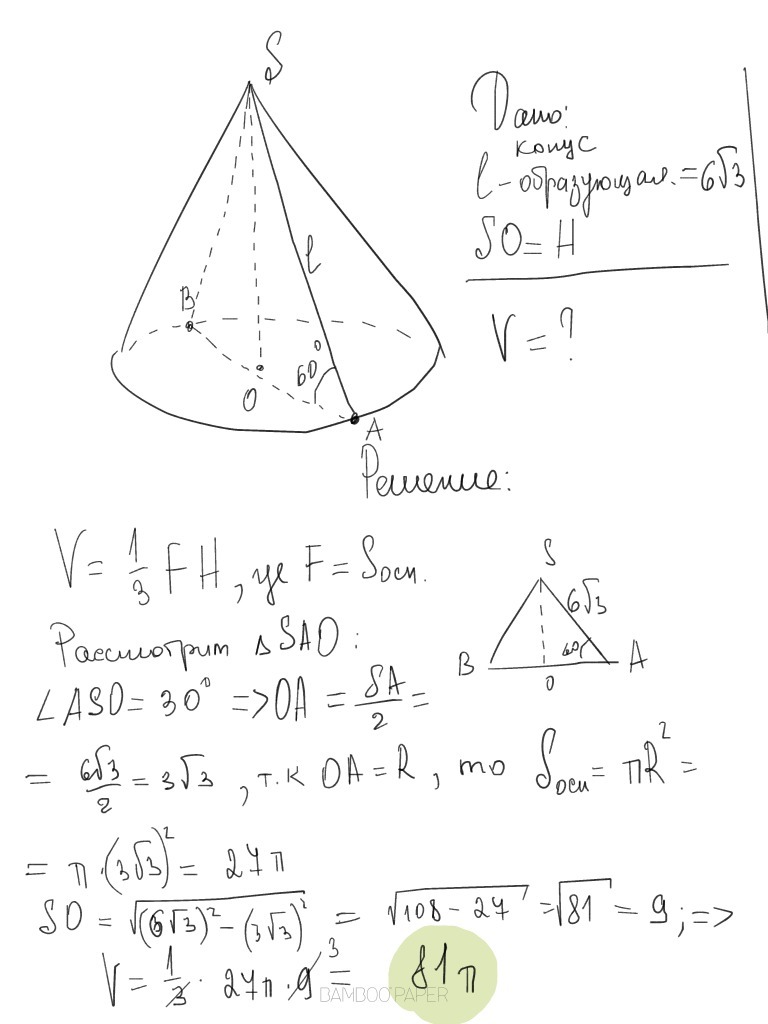 S
Дано:
конус
l - образующая. = 6√3
SO = H
V = ?
l
B
60°
O
A
Решение:
V = 1/3 FH, где F = Sосн.
S
6√3
60°
B
O
A
Рассмотрим △SAO:
∠ASO = 30° => OA = SA/2 =
= 6√3/2 = 3√3, т.к OA = R, то Sосн = πR² =
= π·(3√3)² = 27π
SO = √((6√3)² - (3√3)²) = √(108 - 27) = √81 = 9; =>
V = 1/3 · 27π · 9 3 = 81π
BAMBOO PAPER